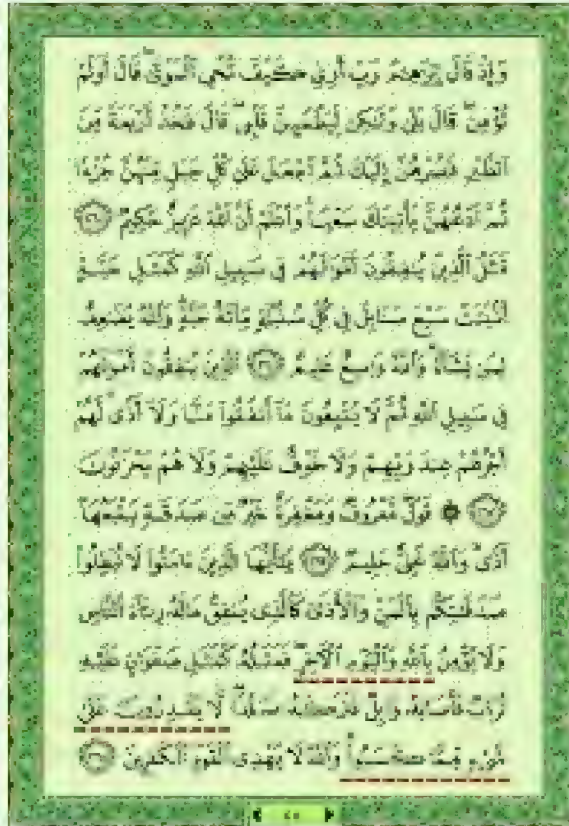 وَإِذْ قَالَ إِبْرَٰهِـۧمُ رَبِّ أَرِنِى كَيْفَ تُحْىِ ٱلْمَوْتَىٰ ۖ قَالَ أَوَلَمْ
تُؤْمِن ۖ قَالَ بَلَىٰ وَلَٰكِن لِّيَطْمَئِنَّ قَلْبِى ۖ قَالَ فَخُذْ أَرْبَعَةً مِّنَ
ٱلطَّيْرِ فَصُرْهُنَّ إِلَيْكَ ثُمَّ ٱجْعَلْ عَلَىٰ كُلِّ جَبَلٍ مِّنْهُنَّ جُزْءًا
ثُمَّ ٱدْعُهُنَّ يَأْتِينَكَ سَعْيًا ۚ وَٱعْلَمْ أَنَّ ٱللَّهَ عَزِيزٌ حَكِيمٌ ٢٦٠
مَّثَلُ ٱلَّذِينَ يُنفِقُونَ أَمْوَٰلَهُمْ فِى سَبِيلِ ٱللَّهِ كَمَثَلِ حَبَّةٍ
أَنۢبَتَتْ سَبْعَ سَنَابِلَ فِى كُلِّ سُنۢبُلَةٍ مِّا۟ئَةُ حَبَّةٍ ۗ وَٱللَّهُ يُضَٰعِفُ
لِمَن يَشَآءُ ۗ وَٱللَّهُ وَٰسِعٌ عَلِيمٌ ٢٦١ ٱلَّذِينَ يُنفِقُونَ أَمْوَٰلَهُمْ
فِى سَبِيلِ ٱللَّهِ ثُمَّ لَا يُتْبِعُونَ مَآ أَنفَقُوا۟ مَنًّا وَلَآ أَذًى ۙ لَّهُمْ
أَجْرُهُمْ عِندَ رَبِّهِمْ وَلَا خَوْفٌ عَلَيْهِمْ وَلَا هُمْ يَحْزَنُونَ
٢٦٢ ۞ قَوْلٌ مَّعْرُوفٌ وَمَغْفِرَةٌ خَيْرٌ مِّن صَدَقَةٍ يَتْبَعُهَآ
أَذًى ۗ وَٱللَّهُ غَنِىٌّ حَلِيمٌ ٢٦٣ يَٰٓأَيُّهَا ٱلَّذِينَ ءَامَنُوا۟ لَا تُبْطِلُوا۟
صَدَقَٰتِكُم بِٱلْمَنِّ وَٱلْأَذَىٰ كَٱلَّذِى يُنفِقُ مَالَهُۥ رِئَآءَ ٱلنَّاسِ
وَلَا يُؤْمِنُ بِٱللَّهِ وَٱلْيَوْمِ ٱلْـَٔاخِرِ ۖ فَمَثَلُهُۥ كَمَثَلِ صَفْوَانٍ عَلَيْهِ
تُرَابٌ فَأَصَابَهُۥ وَابِلٌ فَتَرَكَهُۥ صَلْدًا ۖ لَّا يَقْدِرُونَ عَلَىٰ
شَىْءٍ مِّمَّا كَسَبُوا۟ ۗ وَٱللَّهُ لَا يَهْدِى ٱلْقَوْمَ ٱلْكَٰفِرِينَ ٢٦٤